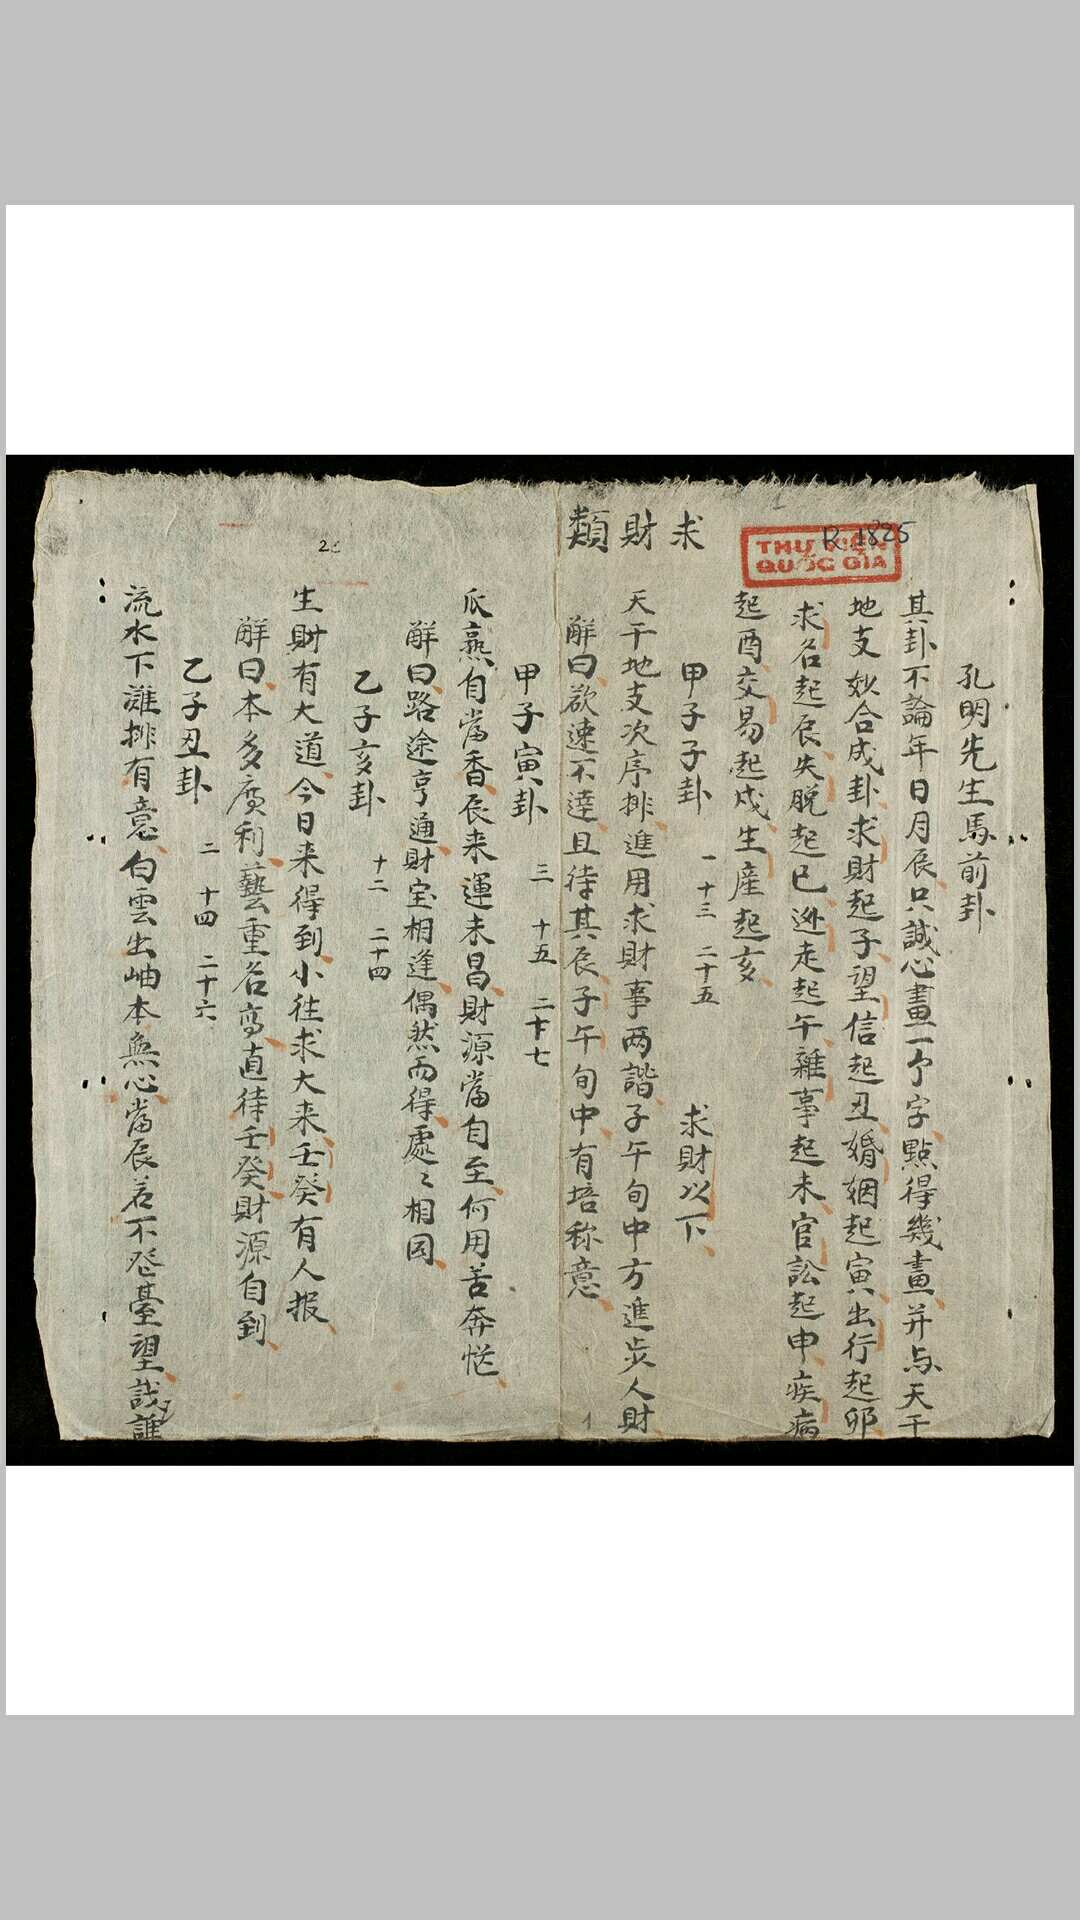 R.1825
THƯ VIỆN
QUỐC GIA
孔明先生馬前卦
其卦不論年日月辰只誠心畫一字點得幾畫并与天干
地支妙合成卦求財起子望信起丑婚姻起寅出行起卯
求名起辰失脫起巳逃走起午雜事起未官訟起申疾病
起酉交易起戌生産起亥
求財類
甲子子卦 一 十三 二十五 求財以下
天干地支次序排進用求財事两諧子午旬中方進步人財
解曰欲速不達且待其辰子午旬中有培称意
甲子寅卦 三 十五 二十七
瓜熟自當香辰来運未昌財源當自至何用苦奔忙
解曰路途亨通財宝相逢偶然而得處〻相同
乙子亥卦 十二 二十四
生財有大道今日来得到小往求大来壬癸有人报
解曰本多廣利藝重名高直待壬癸財源自到
乙子丑卦 二 十四 二十六
流水下灘排有意白雲出岫本無心當辰若不登臺望誰
1